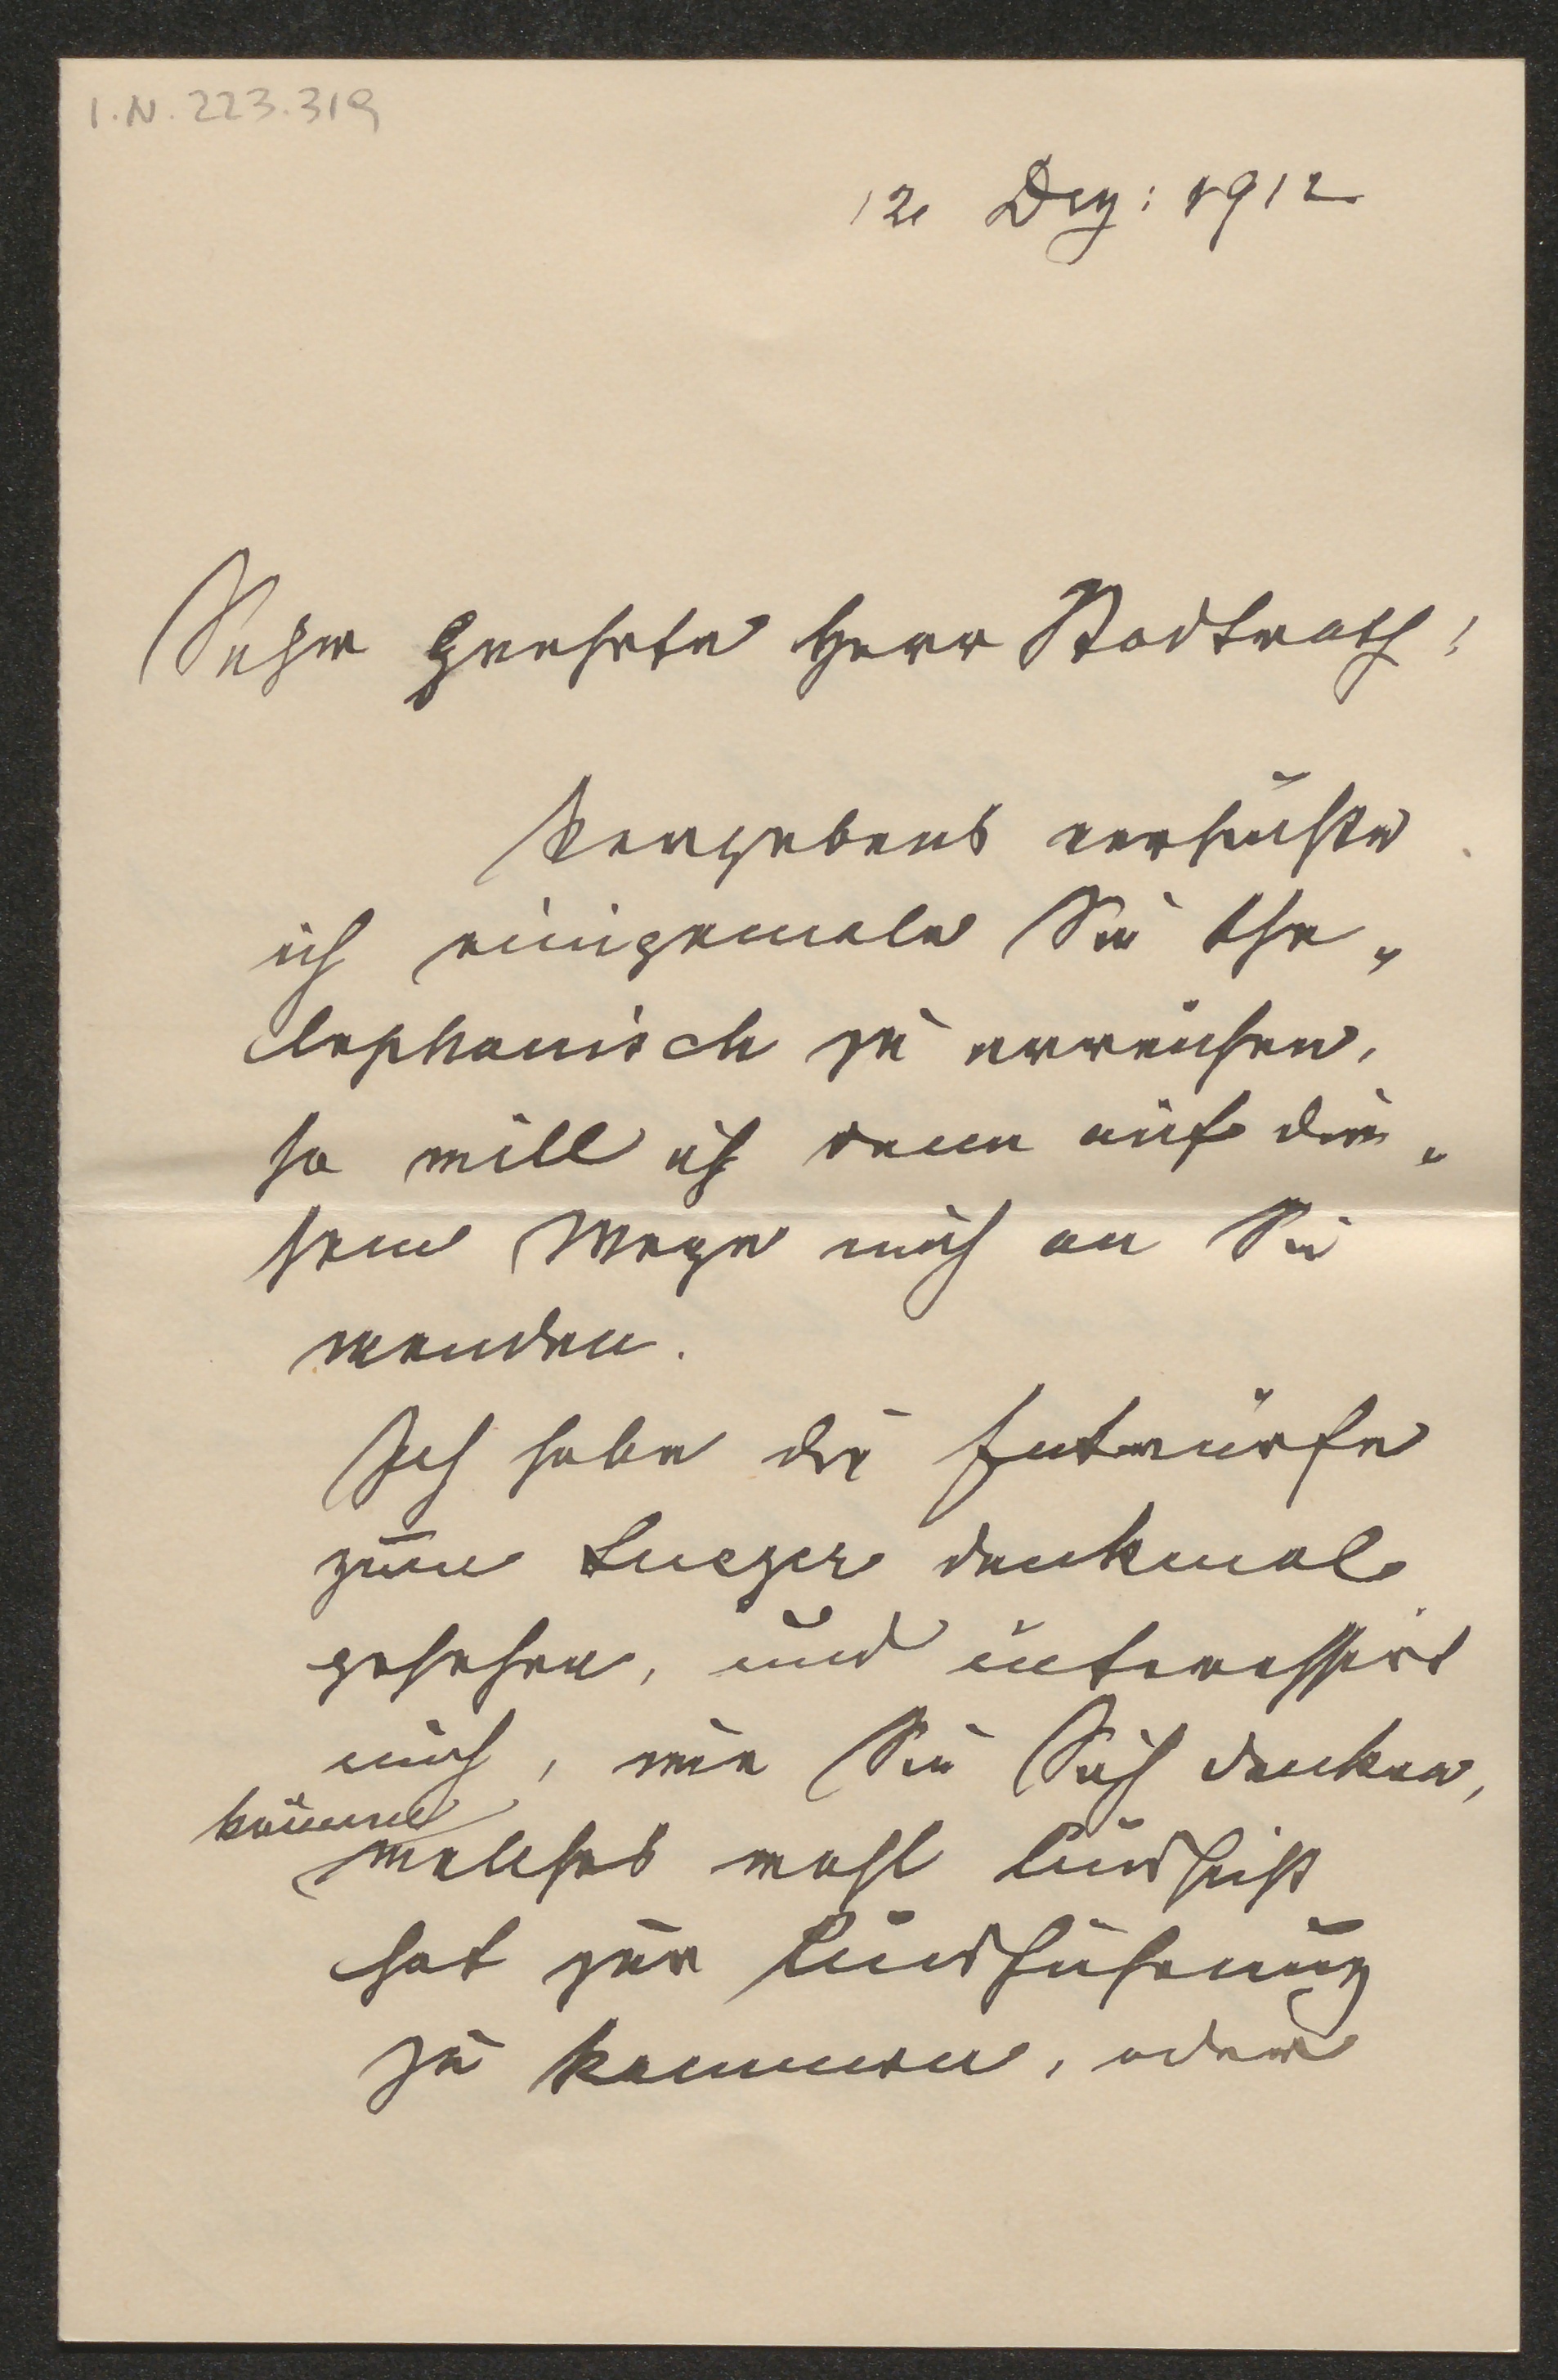 I.N. 223.319
12 Dez: 1912
Sehr geehrter Herr Stadtrath!
Vergebens versuchte
ich einigemale Sie the„
lephonisch zu erreichen,
so will ich denn auf die„
sem Wege mich an Sie
wenden.
Ich habe die Entwürfe
zum Lueger denkmal
gesehen, und interessirt
mich, wie Sie Sich denken,
können
welches wohl Aussicht
hat zur Ausführung
zu kommen, oder